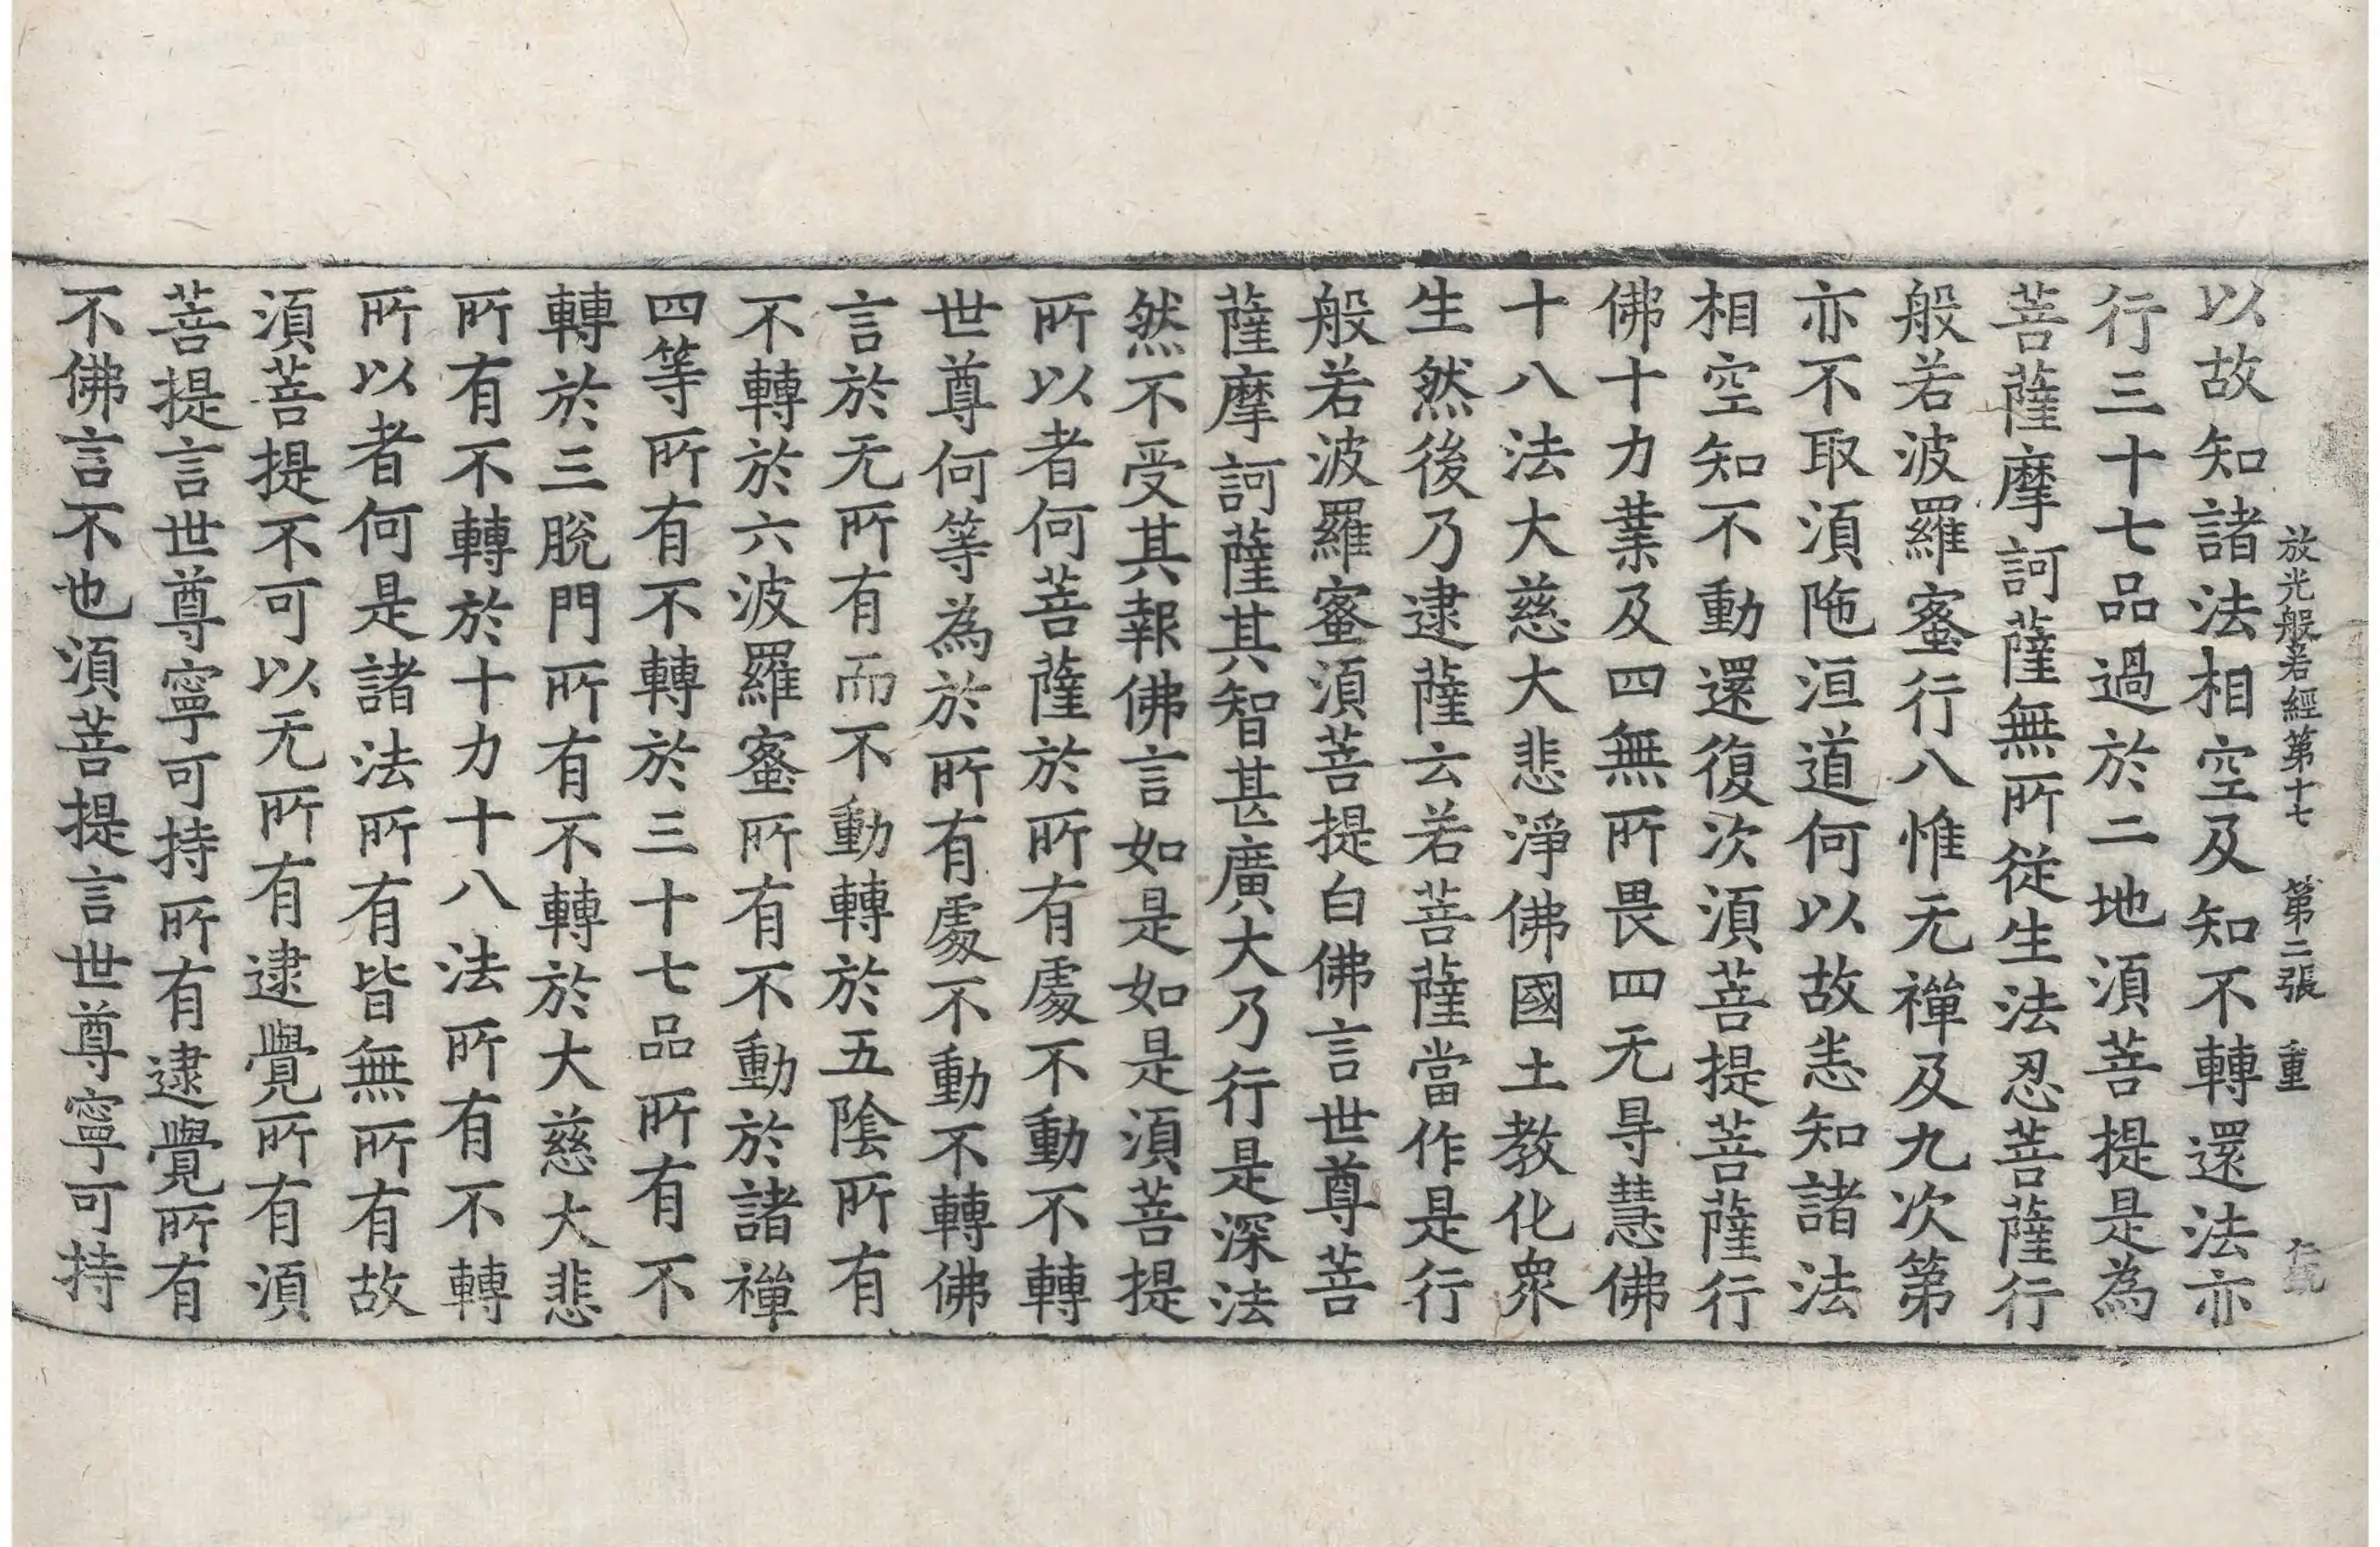 放光般若經第十七 第二張 重
以故知諸法相空及知不轉還法亦
行三十七品過於二地須菩提是為
菩薩摩訶薩無所從生法忍菩薩行
般若波羅蜜行八惟无禪及九次第
亦不取須陁洹道何以故恚知諸法
相空知不動還復次須菩提菩薩行
佛十力業及四無所畏四无㝵慧佛
十八法大慈大悲淨佛國土教化衆
生然後乃逮薩云若菩薩當作是行
般若波羅蜜須菩提白佛言世尊菩
薩摩訶薩其智甚廣大乃行是深法
然不受其報佛言如是如是須菩提
所以者何菩薩於所有處不動不轉
世尊何等為於所有處不動不轉佛
言於无所有而不動轉於五陰所有
不轉於六波羅蜜所有不動於諸禪
四等所有不轉於三十七品所有不
轉於三脫門所有不轉於大慈大悲
所有不轉於十力十八法所有不轉
所以者何是諸法所有皆無所有故
須菩提不可以无所有逮覺所有須
菩提言世尊寧可持所有逮覺所有
不佛言不也須菩提言世尊寧可持